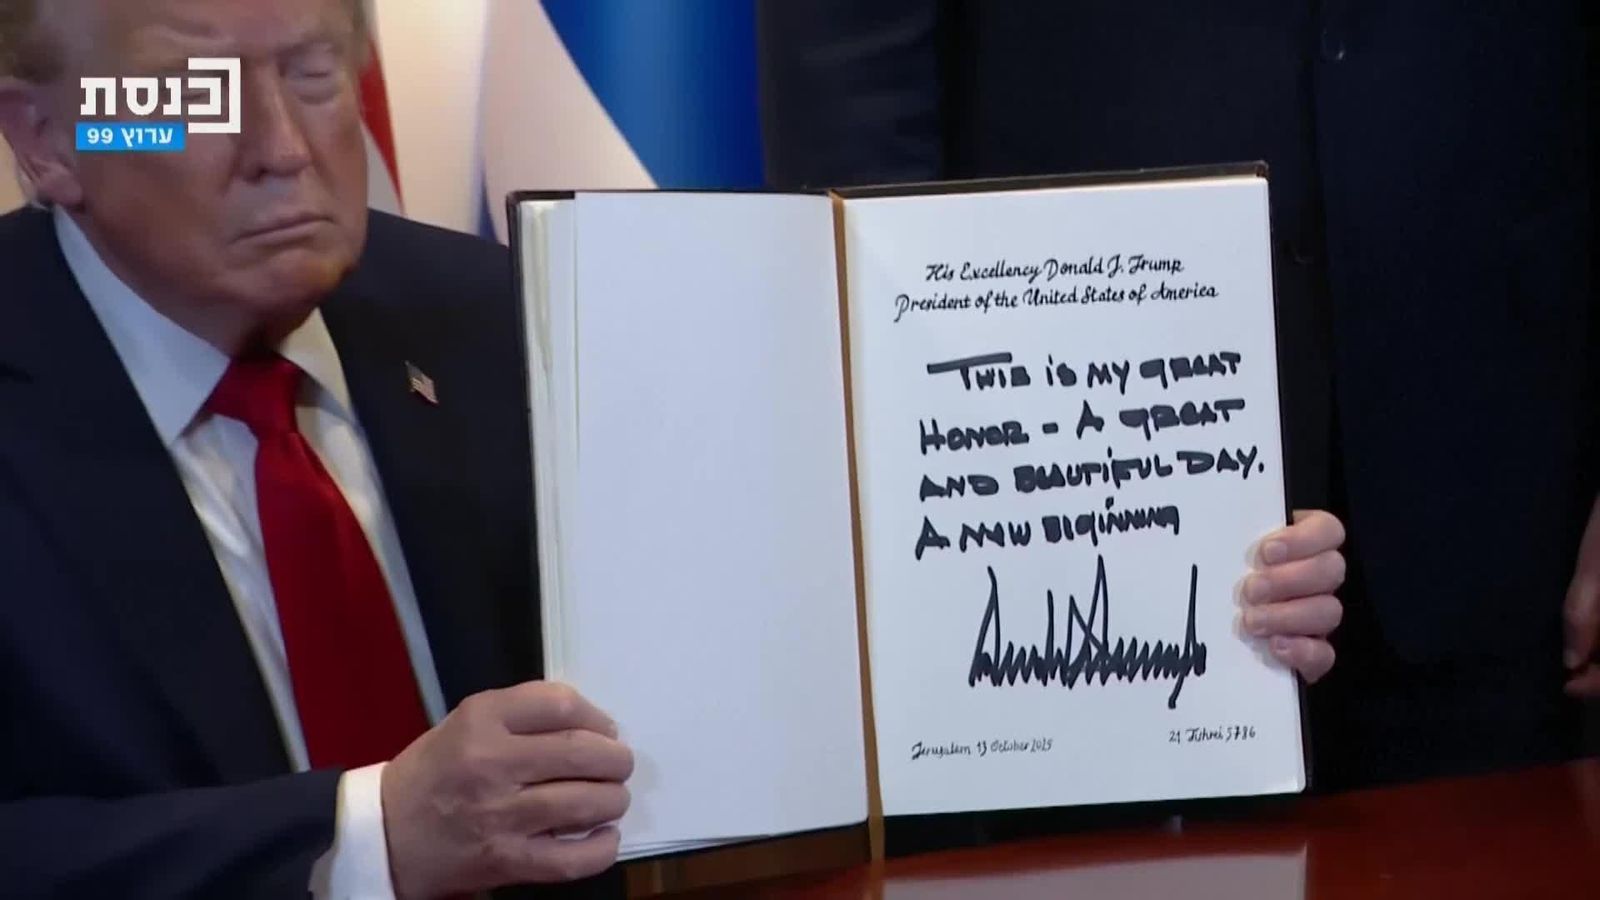 כנסת
ערוץ 99
His Excellency Donald J. Trump
President of the United States of America
THIS IS MY GREAT
HONOR - A GREAT
AND BEAUTIFUL DAY.
A NEW BIGINNING
Jerusalem 13 October 2025
21 Tishrei 5786